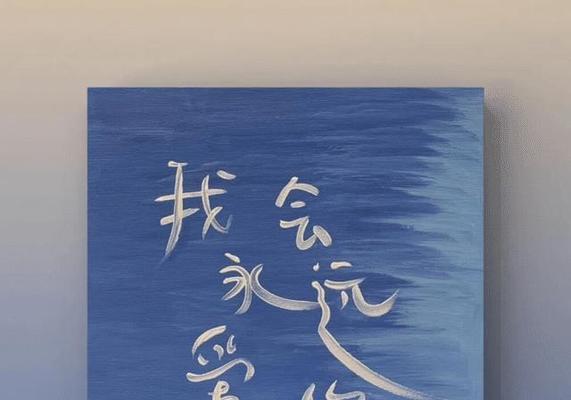 我会
永远
爱